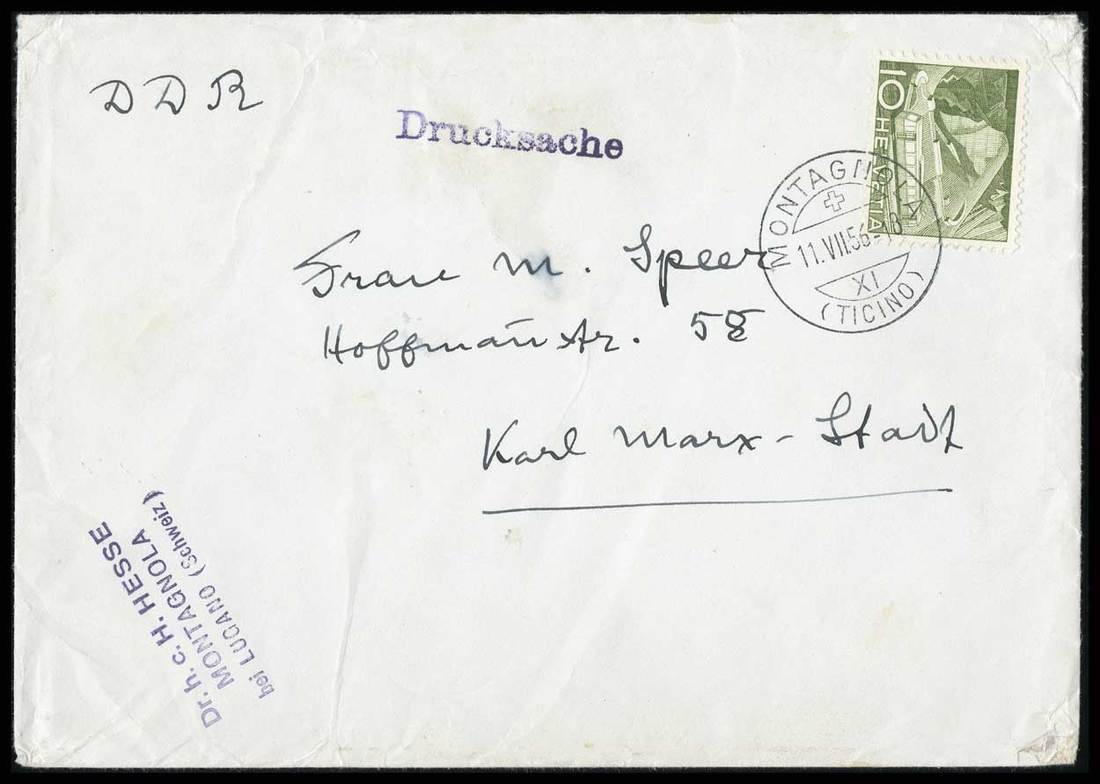 DDR
Drucksache
10 HELVETIA
MONTAGNOLA
11.VII.56-18
XI
(TICINO)
Frau M. Speer
Hoffmanstr. 58
Karl Marx-Stadt
Dr. h. c. H. HESSE
MONTAGNOLA
bei LUGANO (Schweiz)